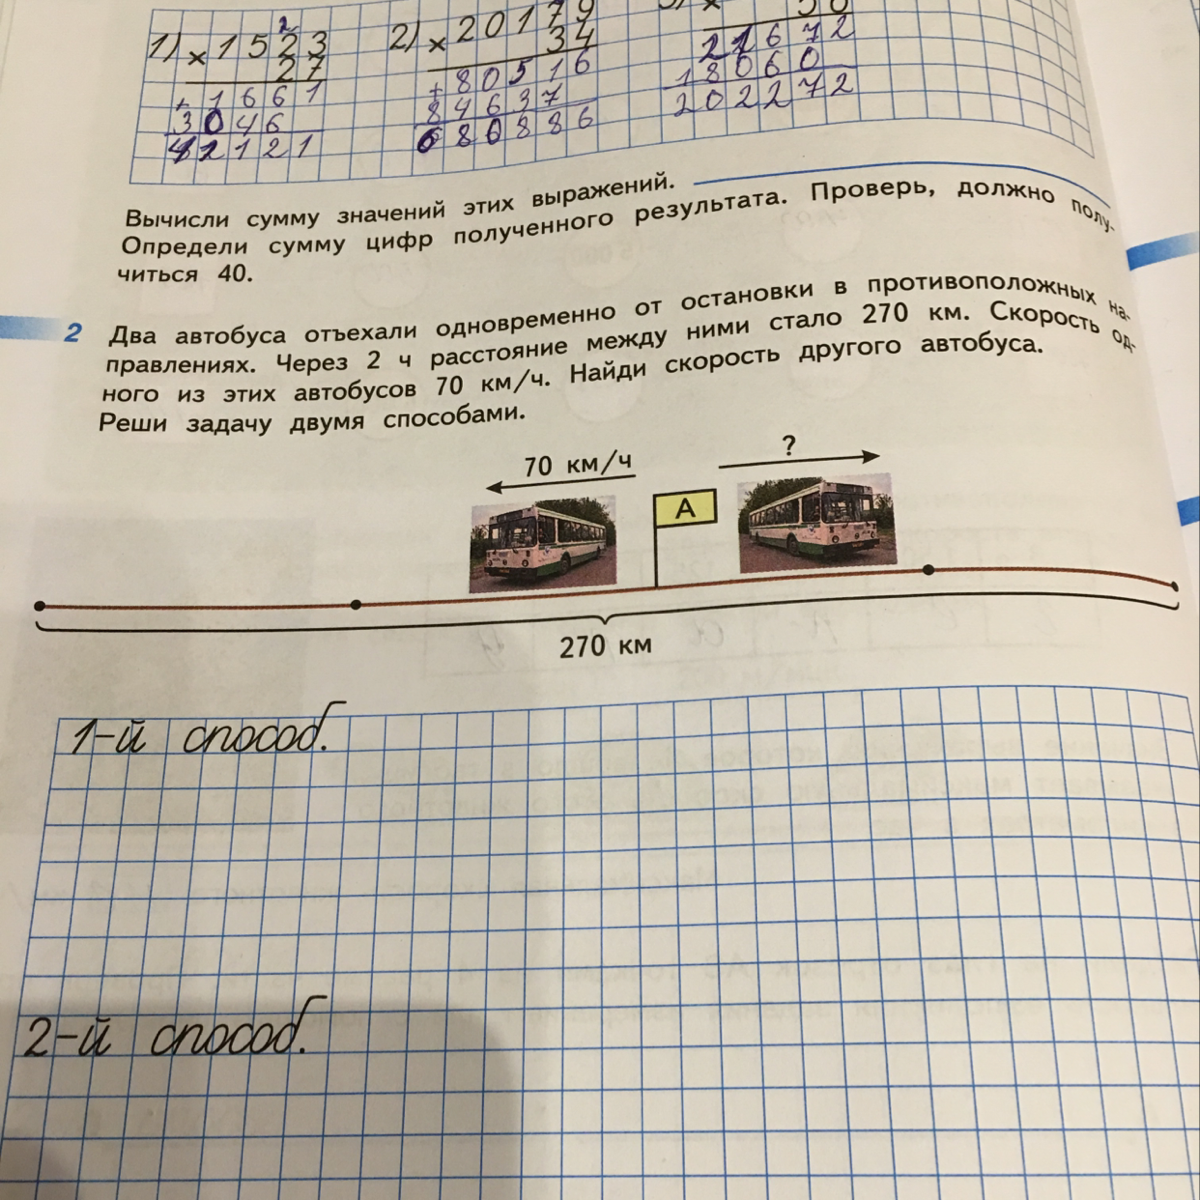 1) × 1 5 2 3
2
2 7
+ 1 6 6 1
3 0 4 6
4 2 1 2 1
2) × 2 0 1 7 9
3 4
+ 8 0 5 1 6
8 4 6 3 7
6 8 0 8 8 6
×
2 1 6 7 2
1 8 0 6 0
2 0 2 2 7 2
Вычисли сумму значений этих выражений.
Определи сумму цифр полученного результата. Проверь, должно полу-
читься 40.
2 Два автобуса отъехали одновременно от остановки в противоположных на-
правлениях. Через 2 ч расстояние между ними стало 270 км. Скорость од-
ного из этих автобусов 70 км/ч. Найди скорость другого автобуса.
Реши задачу двумя способами.
70 км/ч
?
А
270 км
1-й способ.
2-й способ.